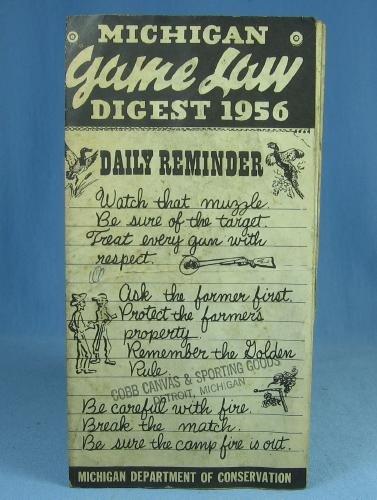 MICHIGAN
Game Law
DIGEST 1956
DAILY REMINDER
Watch that muzzle.
Be sure of the target.
Treat every gun with
respect.
Ask the farmer first.
Protect the farmer's
property.
Remember the Golden
Rule.
COBB CANVAS & SPORTING GOODS
DETROIT, MICHIGAN
Be careful with fire.
Break the match.
Be sure the camp fire is out.
MICHIGAN DEPARTMENT OF CONSERVATION